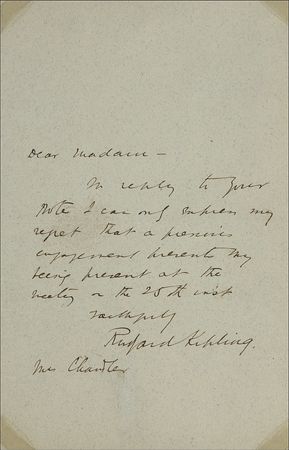 Dear Madam —
In reply to your
note I can only express my
regret that a previous
engagement prevents my
being present at the
meeting on the 25th inst
Faithfully
Rudyard Kipling.
Mrs Chandler